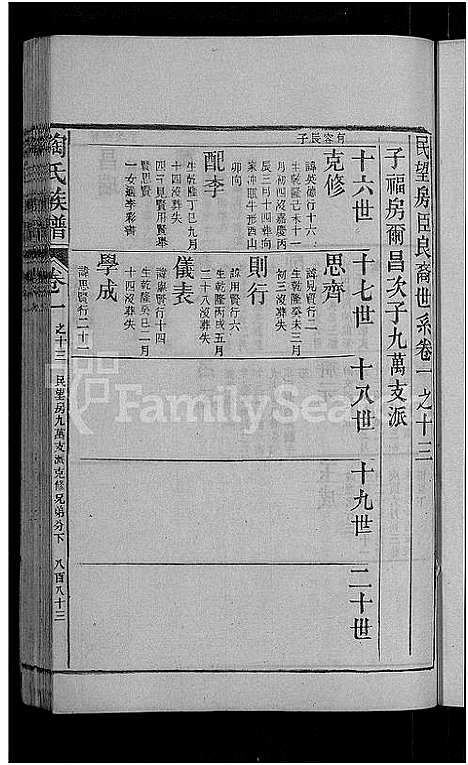 民望房臣良裔世系卷一之十三
子福房爾昌次子九萬支派
十六世
十七世
十八世
十九世
二十世
有容長子
克修
諱英德行十六
生乾隆己未十一
月初四沒嘉慶丙
辰三月十四葬向
家冲田牛形酉山
卯向
配李
生乾隆丁巳九月
十四沒葬失
四子見賢用賢舉
賢思賢
一女適李彩書
思齊
諱見賢行二
生乾隆癸未三月
初三沒葬失
則行
諱用賢行六
生乾隆丙戌五月
二十八沒葬失
儀表
諱舉賢行十四
生乾隆癸巳二月
十四沒葬失
學成
諱思賢行二十二
陶氏族譜
卷一
之十三
民望房九萬支派克修兄弟分下
八百八十三
FamilySea